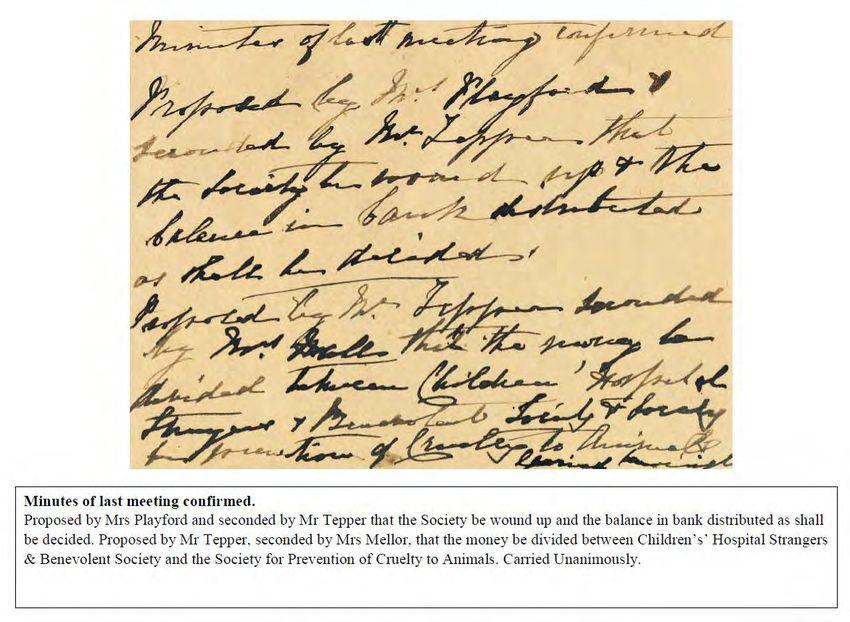 Minutes of last meeting confirmed
Proposed by Mrs Playford &
seconded by Mr. Tepper that
the Society be wound up & the
balance in bank distributed
as shall be decided.
Proposed by Mr. Tepper seconded
by Mrs that the money be
divided between Children' Hospital
Strangers & Benevolent Society & Society
for prevention of Cruelty to Animals
Carried
Minutes of last meeting confirmed.
Proposed by Mrs Playford and seconded by Mr Tepper that the Society be wound up and the balance in bank distributed as shall
be decided. Proposed by Mr Tepper, seconded by Mrs Mellor, that the money be divided between Children’s’ Hospital Strangers
& Benevolent Society and the Society for Prevention of Cruelty to Animals. Carried Unanimously.